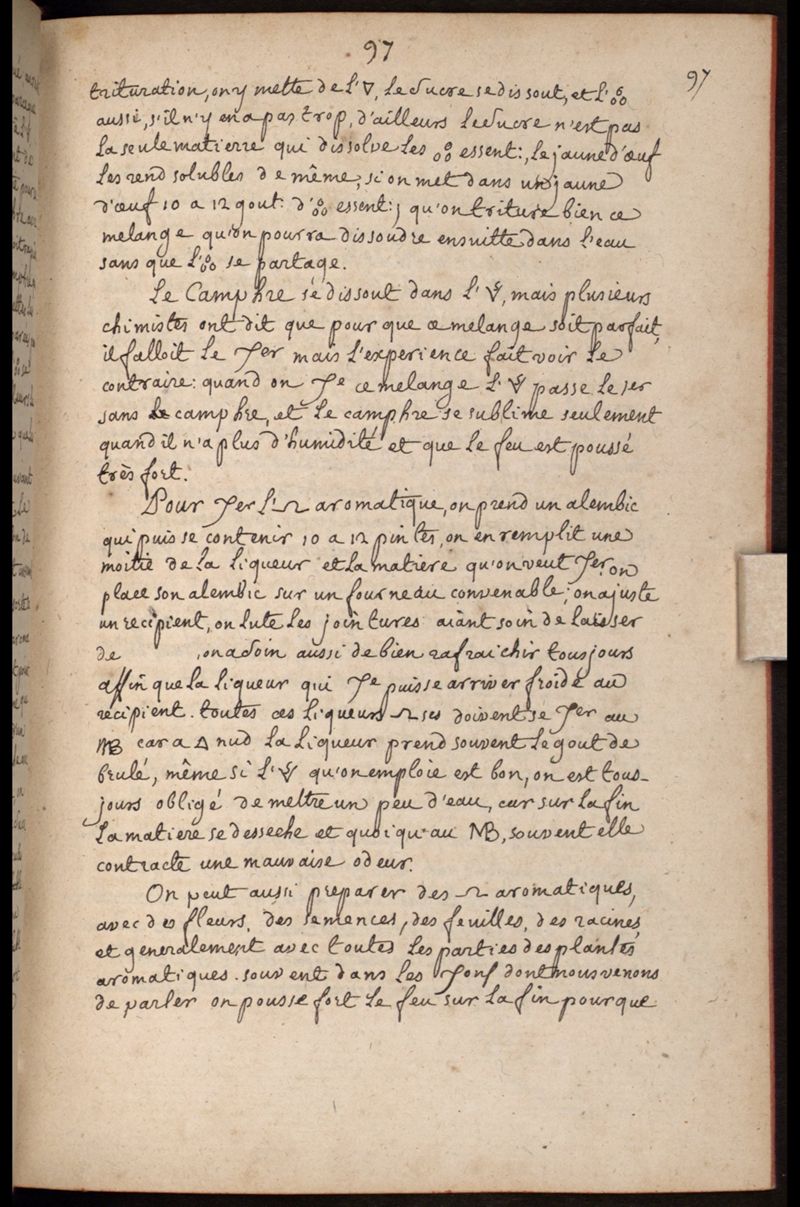 97
97
trituration, on y mette de l'🜄, le sucre se dissout, et l'
aussi, s'il n'y en a pas trop, d'ailleurs le sucre n'est pas
la seule matierre qui dissolve les essent:, le jaune d'œuf
les rend solubles de même, si on met dans un jaune
d'œuf 10 a 12 gout: d' essent:, qu'on triture bien ce
melange qu'on pourra dissoudre ensuitte dans l'eau
sans que l' se partage.
Le Camphre se dissout dans l', mais plusieurs
chimistes ont dit que pour que ce melange soit parfait,
il falloit le er mais l'experience fait voir le
contraire: quand on e ce melange l' passe le 1er
sans le camphre, et le camphre se sublime seulement
quand il n'a plus d'humidité et que le feu est poussé
très fort.
Pour er l' aromatique, on prend un alembic
qui puisse contenir 10 a 12 pintes, on en remplit une
moitié de la liqueur et la matiere qu'on veut er, on
place son alembic sur un fourneau convenable; on ajuste
un recipient, on lute les jointures aiant soin de laisser
de , on a soin aussi de bien rafraichir tousjours
affin que la liqueur qui e puisse arriver froide au
récipient. toutes ces liqueurs ses doivent se er au
MB car a 🜂 nud la liqueur prend souvent le gout de
brulé, même si l' qu'on emploie est bon, on est tous-
jours obligé de mettre un peu d'eau, car sur la fin
la matiere se desseche et quoi qu'au MB, souvent elle
contracte une mauvaise odeur.
On peut aussi preparer des aromatiques,
avec des fleurs, des semences, des feuilles, des racines
et generalement avec toutes les parties des plantes
aromatiques. souvent dans les dont nous venons
de parler on pousse fort le feu sur la fin pour que